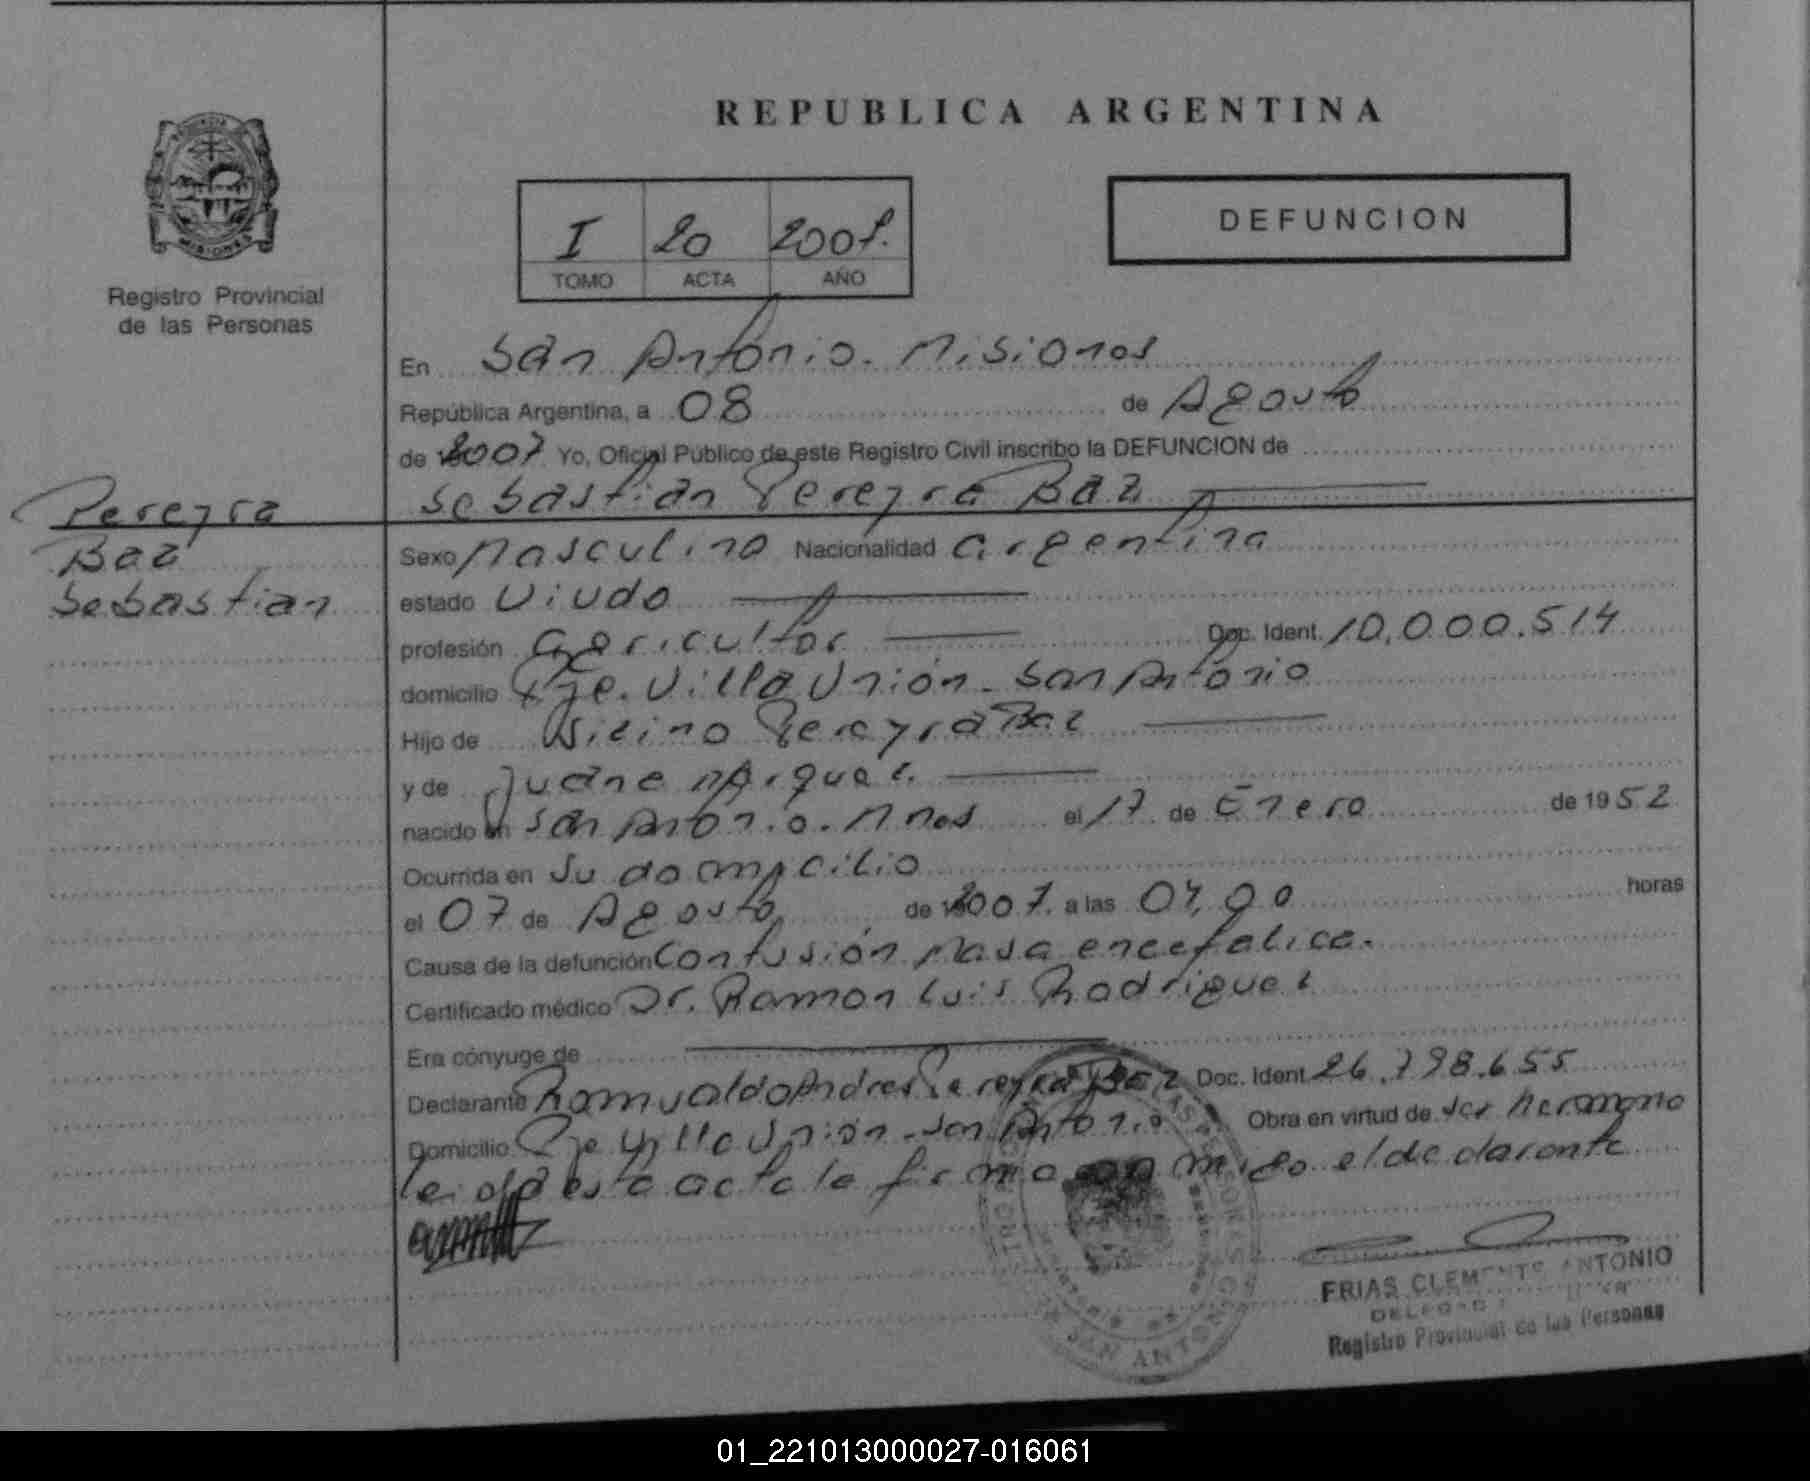 REPUBLICA ARGENTINA
PROVINCIA DE
MISIONES
Registro Provincial
de las Personas
I 20 2007.
TOMO ACTA AÑO
DEFUNCION
En San Antonio. Misiones
República Argentina, a 08 de Agosto
de 2007 Yo, Oficial Público de este Registro Civil inscribo la DEFUNCION de
Sebastián Pereyra Baz
Pereyra
Baz
Sebastian
Sexo Masculino Nacionalidad argentina
estado Viudo
profesión agricultor Doc. Ident. 10.000.514
domicilio Pje. Villa Unión - San Antonio
Hijo de Pereyra Baz
y de Juana
nacido en San Antonio. Mnes el 17 de Enero de 1952
Ocurrida en Su domicilio
el 07 de Agosto de 2007. a las 07,00 horas
Causa de la defunción Contusión Masa encefalica.
Certificado médico Dr. Ramon Luis Rodriguez
Era cónyuge de
Declarante Romualdo Andres Pereyra Baz Doc. Ident. 26.798.655
Domicilio Pje Villa Unión - San Antonio Obra en virtud de ser hermano
leida esta acta la firma con migo el declarante
FRIAS CLEMENTE ANTONIO
Registro Provincial de las Personas
SAN ANTONIO
01_221013000027-016061